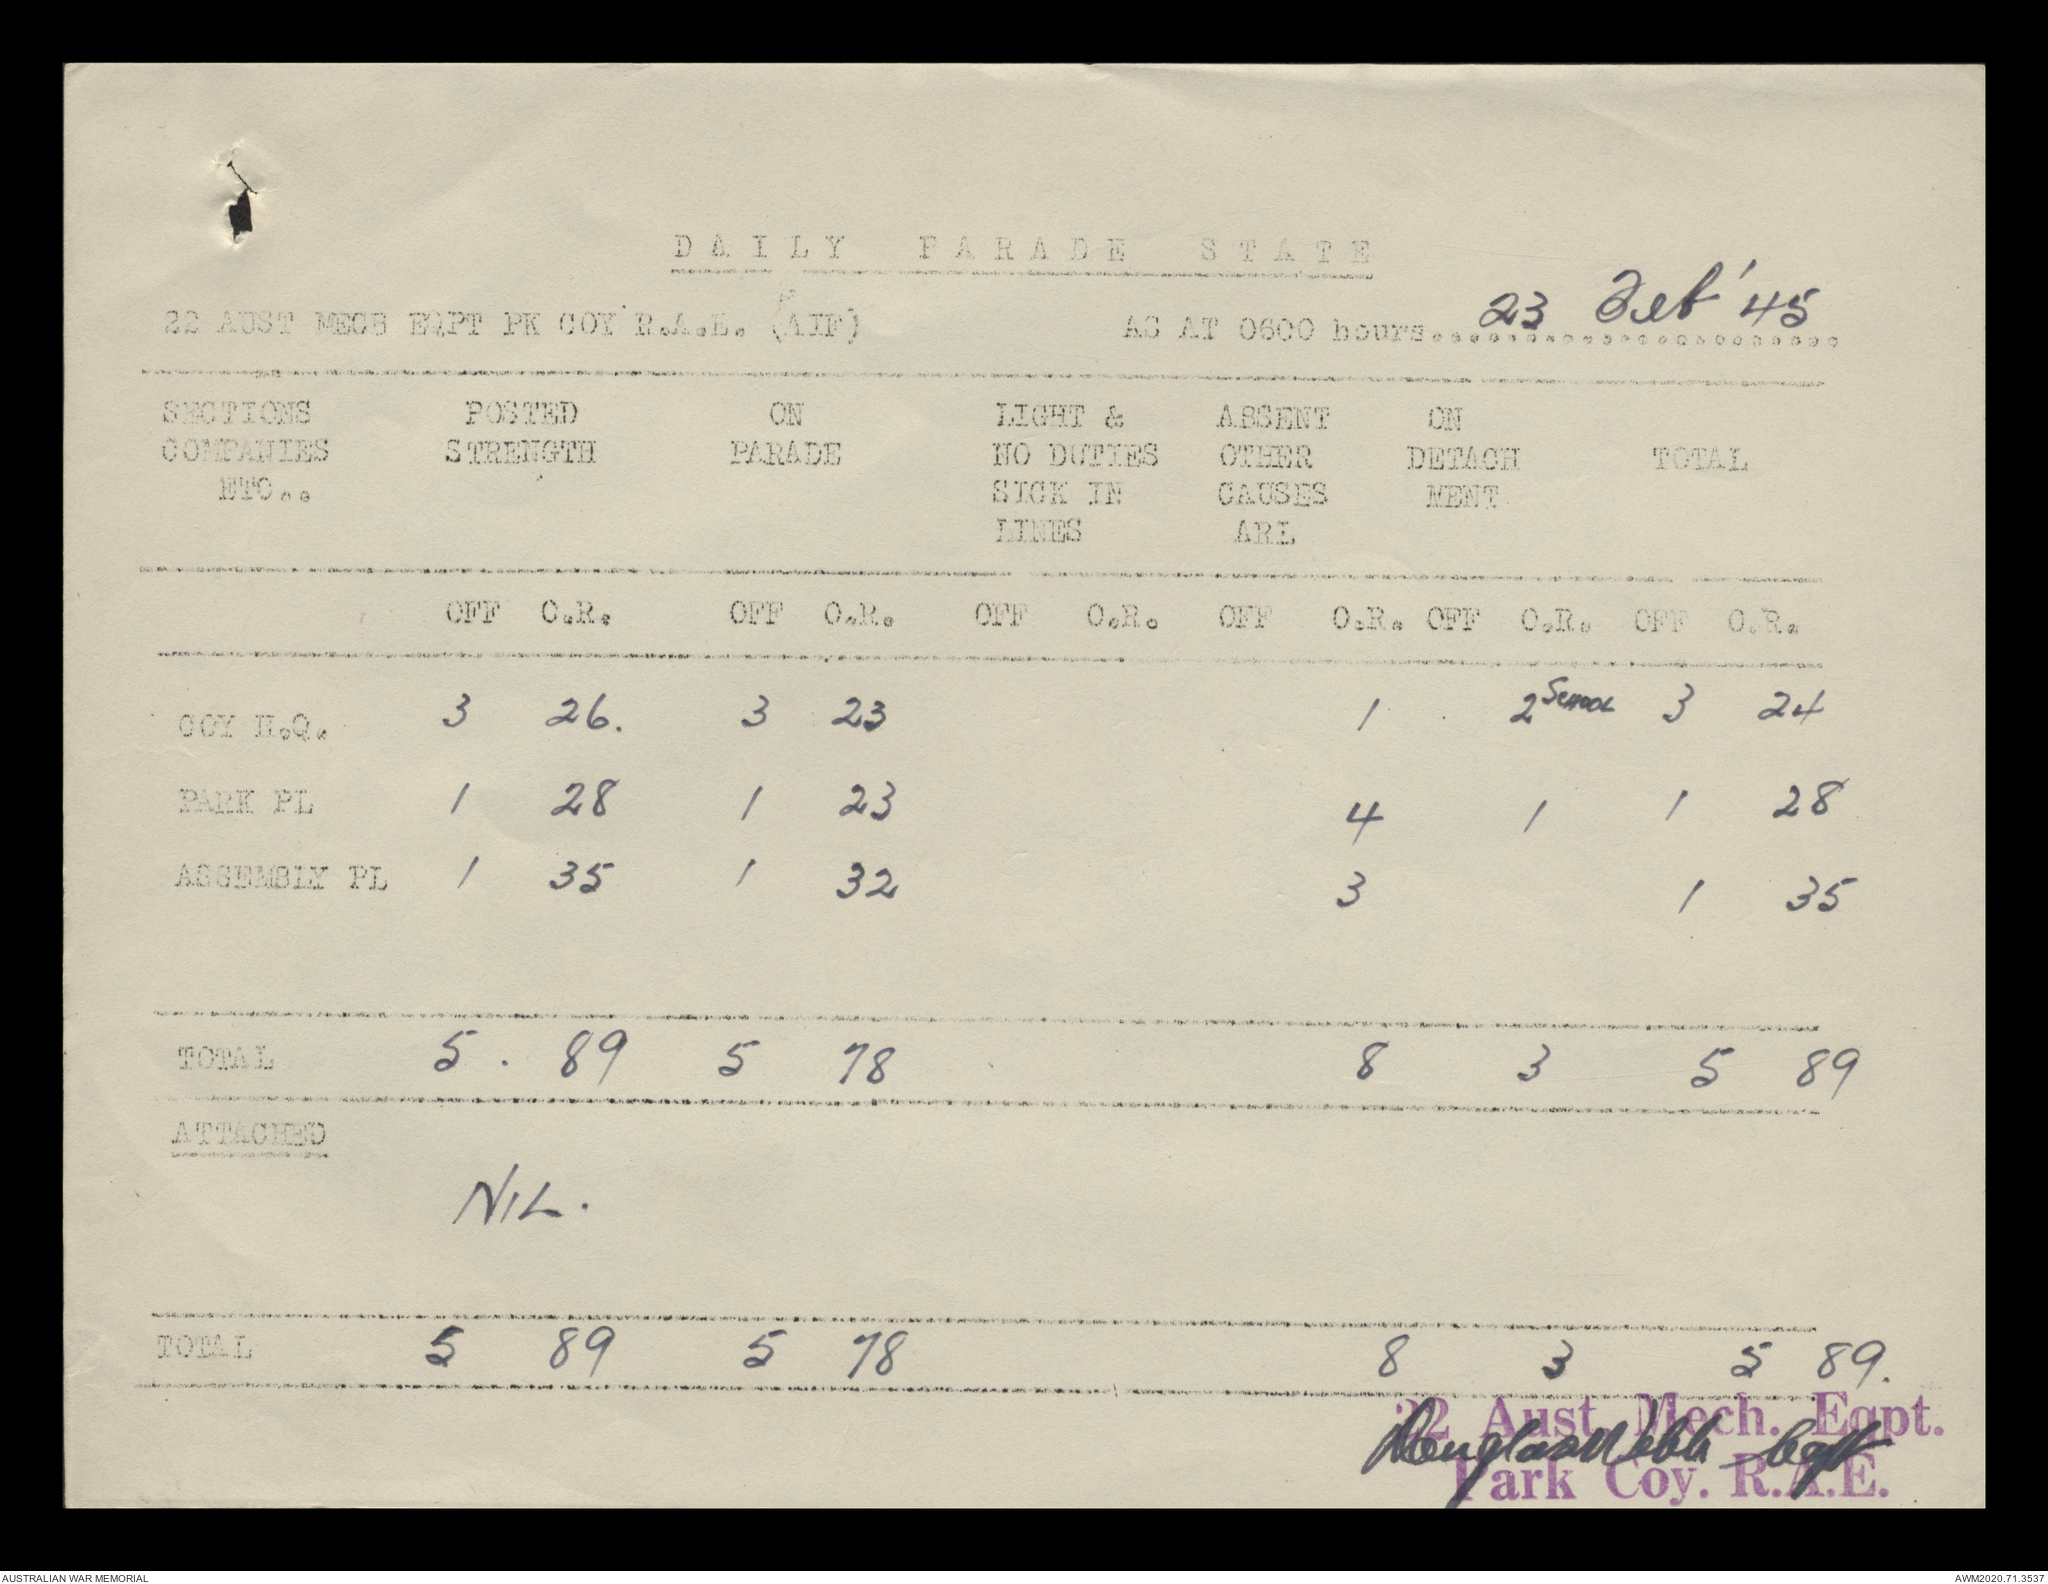 DAILY PARADE STATE
22 AUST MECH EQPT PK COY R.A.E. (AIF) AS AT 0600 hours 23 Feb '45
SECTIONS POSTED ON LIGHT & ABSENT ON
COMPANIES STRENGTH PARADE NO DUTIES OTHER DETACH TOTAL
ETC.. SICK IN CAUSES MENT
LINES ARL
OFF O.R. OFF O.R. OFF O.R. OFF O.R. OFF O.R. OFF O.R.
COY H.Q. 3 26. 3 23 1 2 SCHOOL 3 24
PARK PL 1 28 1 23 4 1 1 28
ASSEMBLY PL 1 35 1 32 3 1 35
TOTAL 5 . 89 5 78 8 3 5 89
ATTACHED
NIL.
TOTAL 5 89 5 78 8 3 5 89.
22 Aust. Mech. Eqpt.
Douglas Webb Capt
Park Coy. R.A.E.
AUSTRALIAN WAR MEMORIAL AWM2020.71.3537